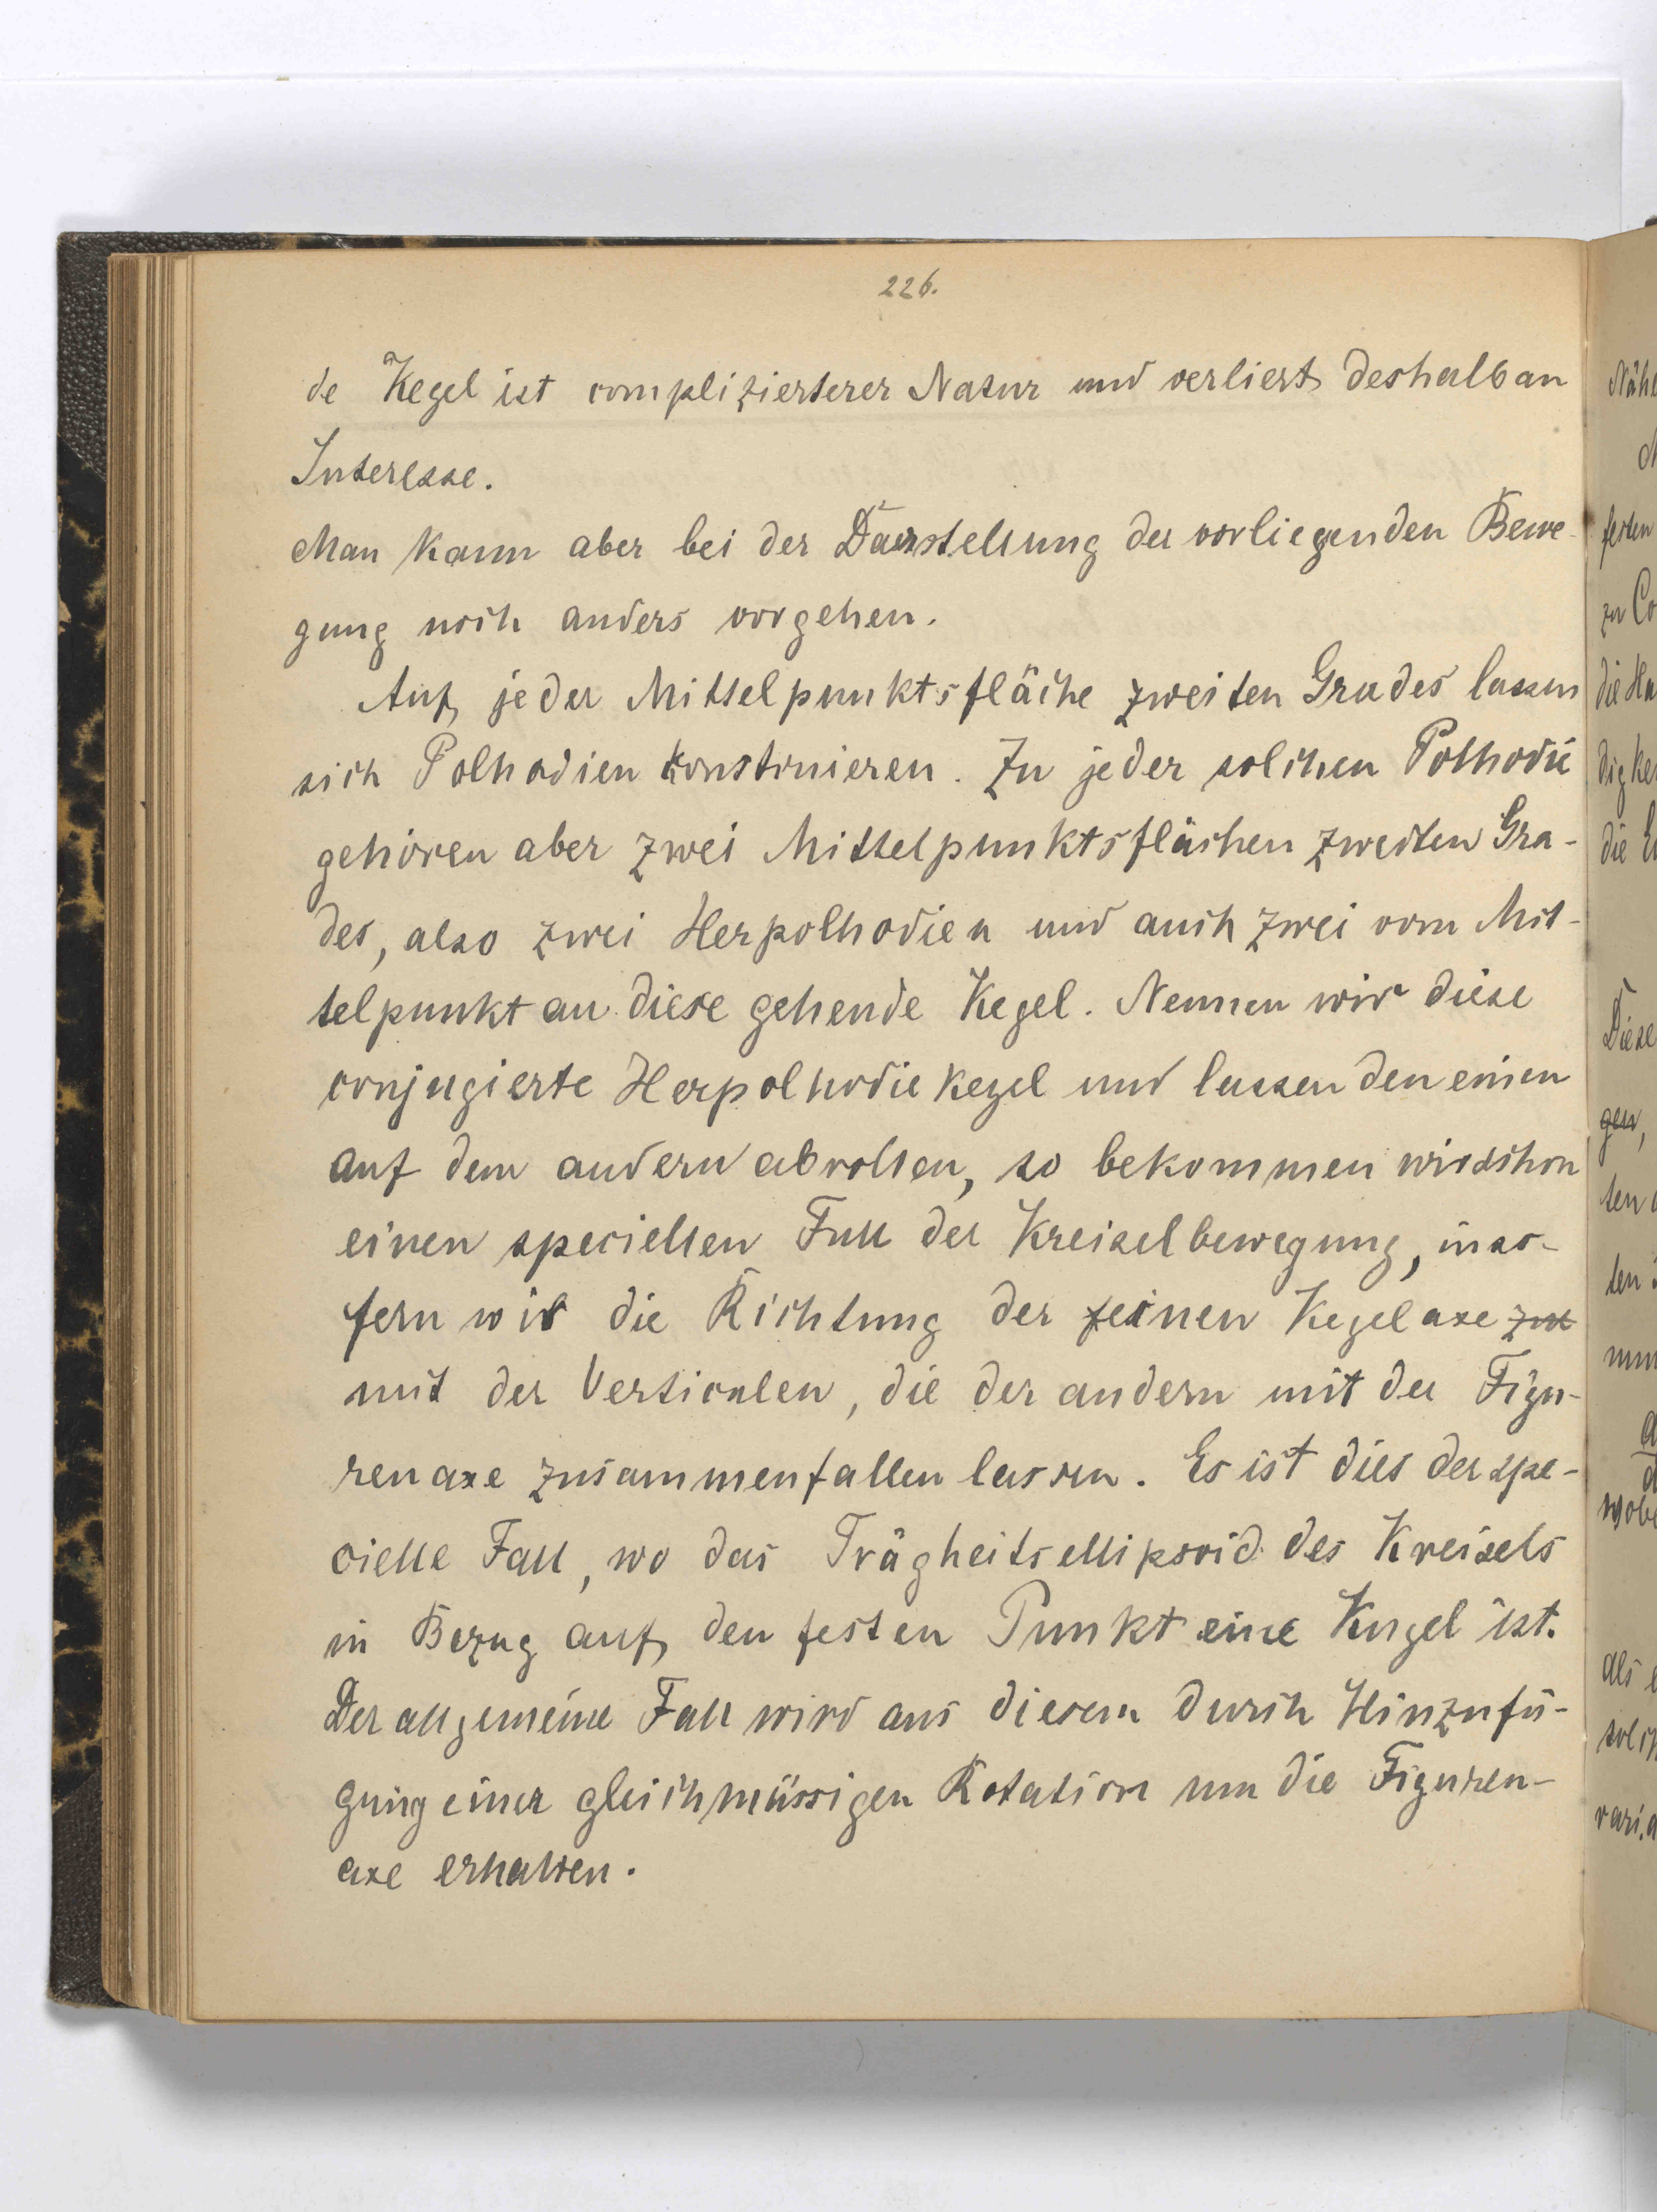 226.
de Kegel ist complizierterer Natur und verliert deshalb an
Interesse.
Man kann aber bei der Darstellung der vorliegenden Bewe-
gung noch anders vorgehen.
Auf jeder Mittelpunktsfläche zweiten Grades lassen
sich Polhodien konstruieren. Zu jeder solchen Polhodie
gehören aber zwei Mittelpunktsflächen zweiten Gra-
des, also zwei Herpolhodien und auch zwei vom Mit-
telpunkt an diese gehende Kegel. Nennen wir diese
conjugierte Herpolhodiekegel und lassen den einen
auf dem andern abrollen, so bekommen wir schon
einen speciellen Fall der Kreiselbewegung, inso-
fern wir die Richtung der einen Kegelaxe zu
mit der Verticalen, die der andern mit der Figu-
renaxe zusammenfallen lassen. Es ist dies der spe-
cielle Fall, wo das Trägheitsellipsoid des Kreisels
in Bezug auf den festen Punkt eine Kugel ist.
Der allgemeine Fall wird aus diesem durch Hinzufü-
gung einer gleichmässigen Rotation um die Figuren-
axe erhalten.
Nähe
festen
zu Co
die Ha
digke
die E
Diese
gen,
ten
ten
wobe
als e
solch